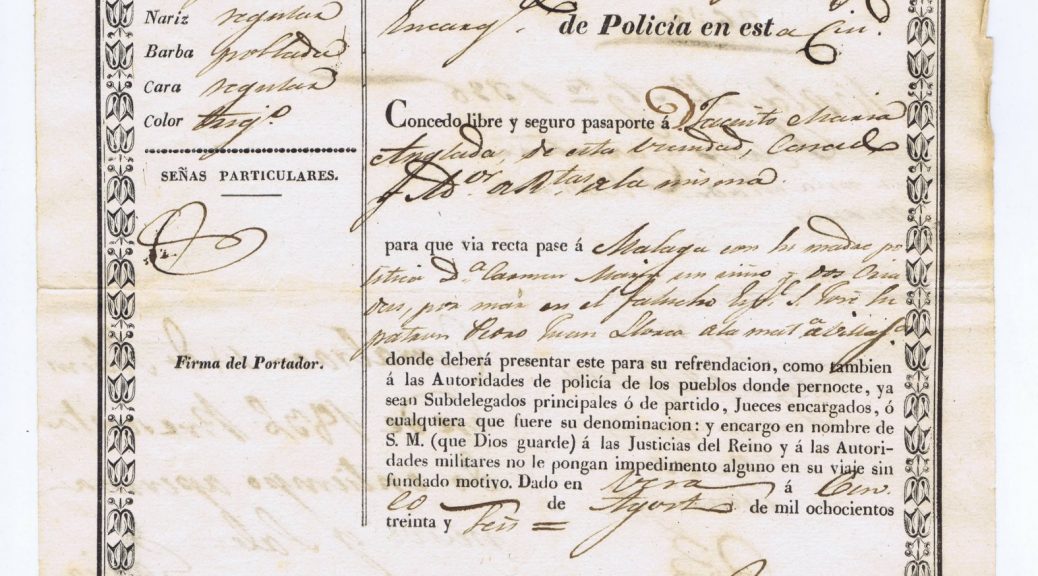 Nariz regular
Barba poblada
Cara regular
Color trigº
SEÑAS PARTICULARES.
Firma del Portador.
Encargº
de Policía en esta Ciu.
Concedo libre y seguro pasaporte á Dn Jacinto Maria
Anglada, de esta vecindad, Casado
y Ador de Rtas de la misma.
para que via recta pase á Malaga con su madre po
litica D.ª Carmen un niño y dos Cria
das, por mar en el falucho Espl. S. José su
patron Pedro Juan Llorca de la mata de Villajª
donde deberá presentar este para su refrendacion, como tambien
á las Autoridades de policía de los pueblos donde pernocte, ya
sean Subdelegados principales ó de partido, Jueces encargados, ó
cualquiera que fuere su denominacion: y encargo en nombre de
S. M. (que Dios guarde) á las Justicias del Reino y á las Autori-
dades militares no le pongan impedimento alguno en su viaje sin
fundado motivo. Dado en Vera á Cin
co de Agosto de mil ochocientos
treinta y Seis =